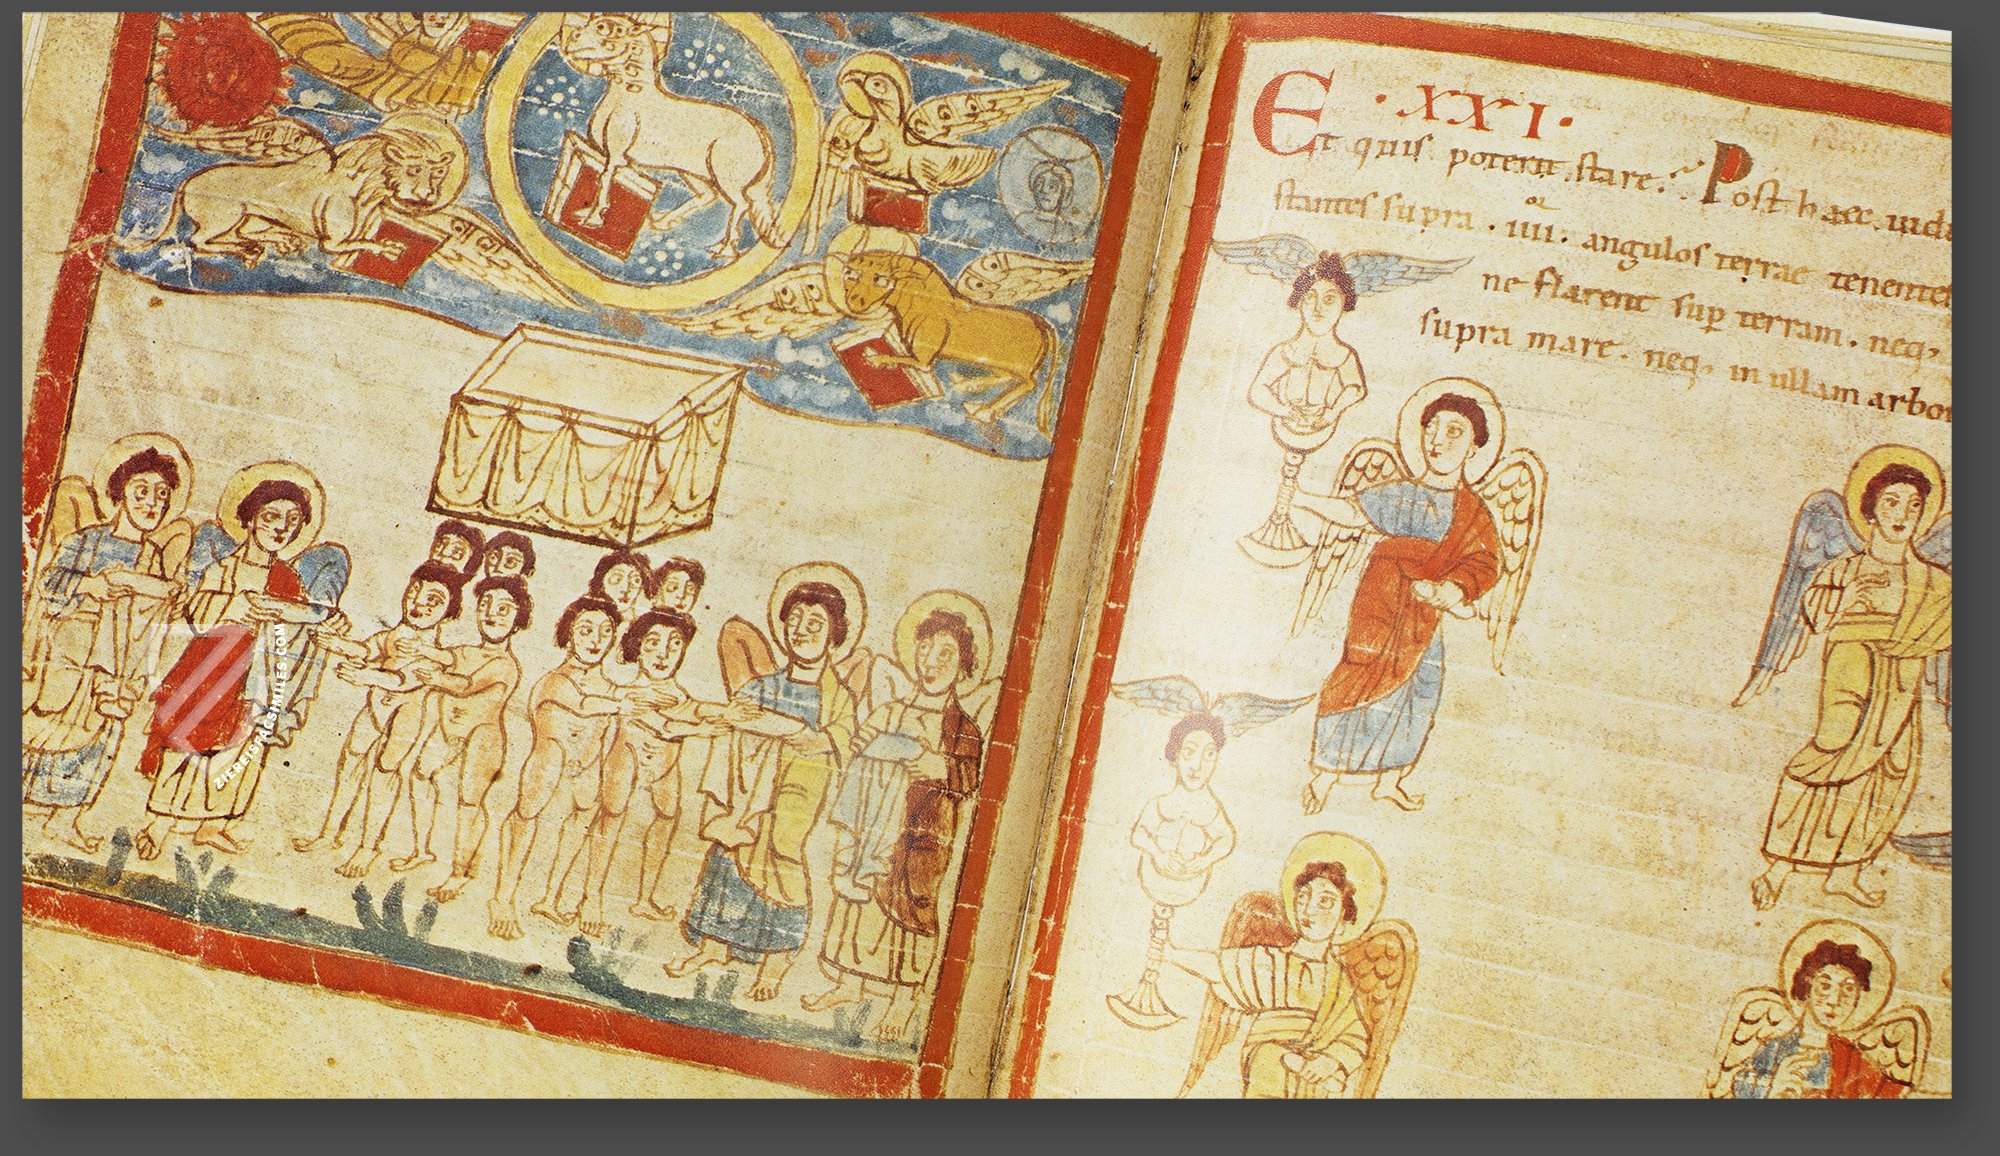 E · XXI ·
Et quis poterit stare. Post haec uidi
stantes supra · IIII · angulos terrae tenentes
ne flarent sup terram. neq;
supra mare. neq; in ullam arbor
ZIEREIS FACSIMILES.COM